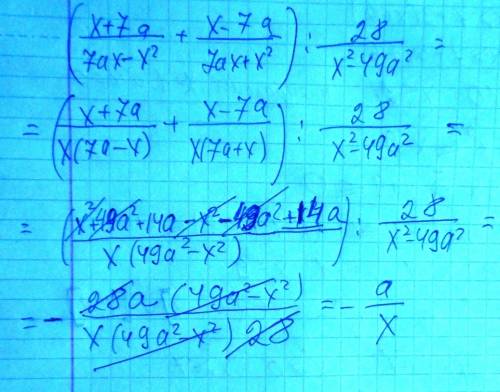 (x+7a/7ax-x² + x-7a/7ax+x²) : 28/x²-49a² =
= (x+7a/x(7a-x) + x-7a/x(7a+x)) : 28/x²-49a² =
= (x²+49a²+14a-x²-49a²+14a/x(49a²-x²)) : 28/x²-49a² =
= - 28a(49a²-x²)/x(49a²-x²)28 = - a/x